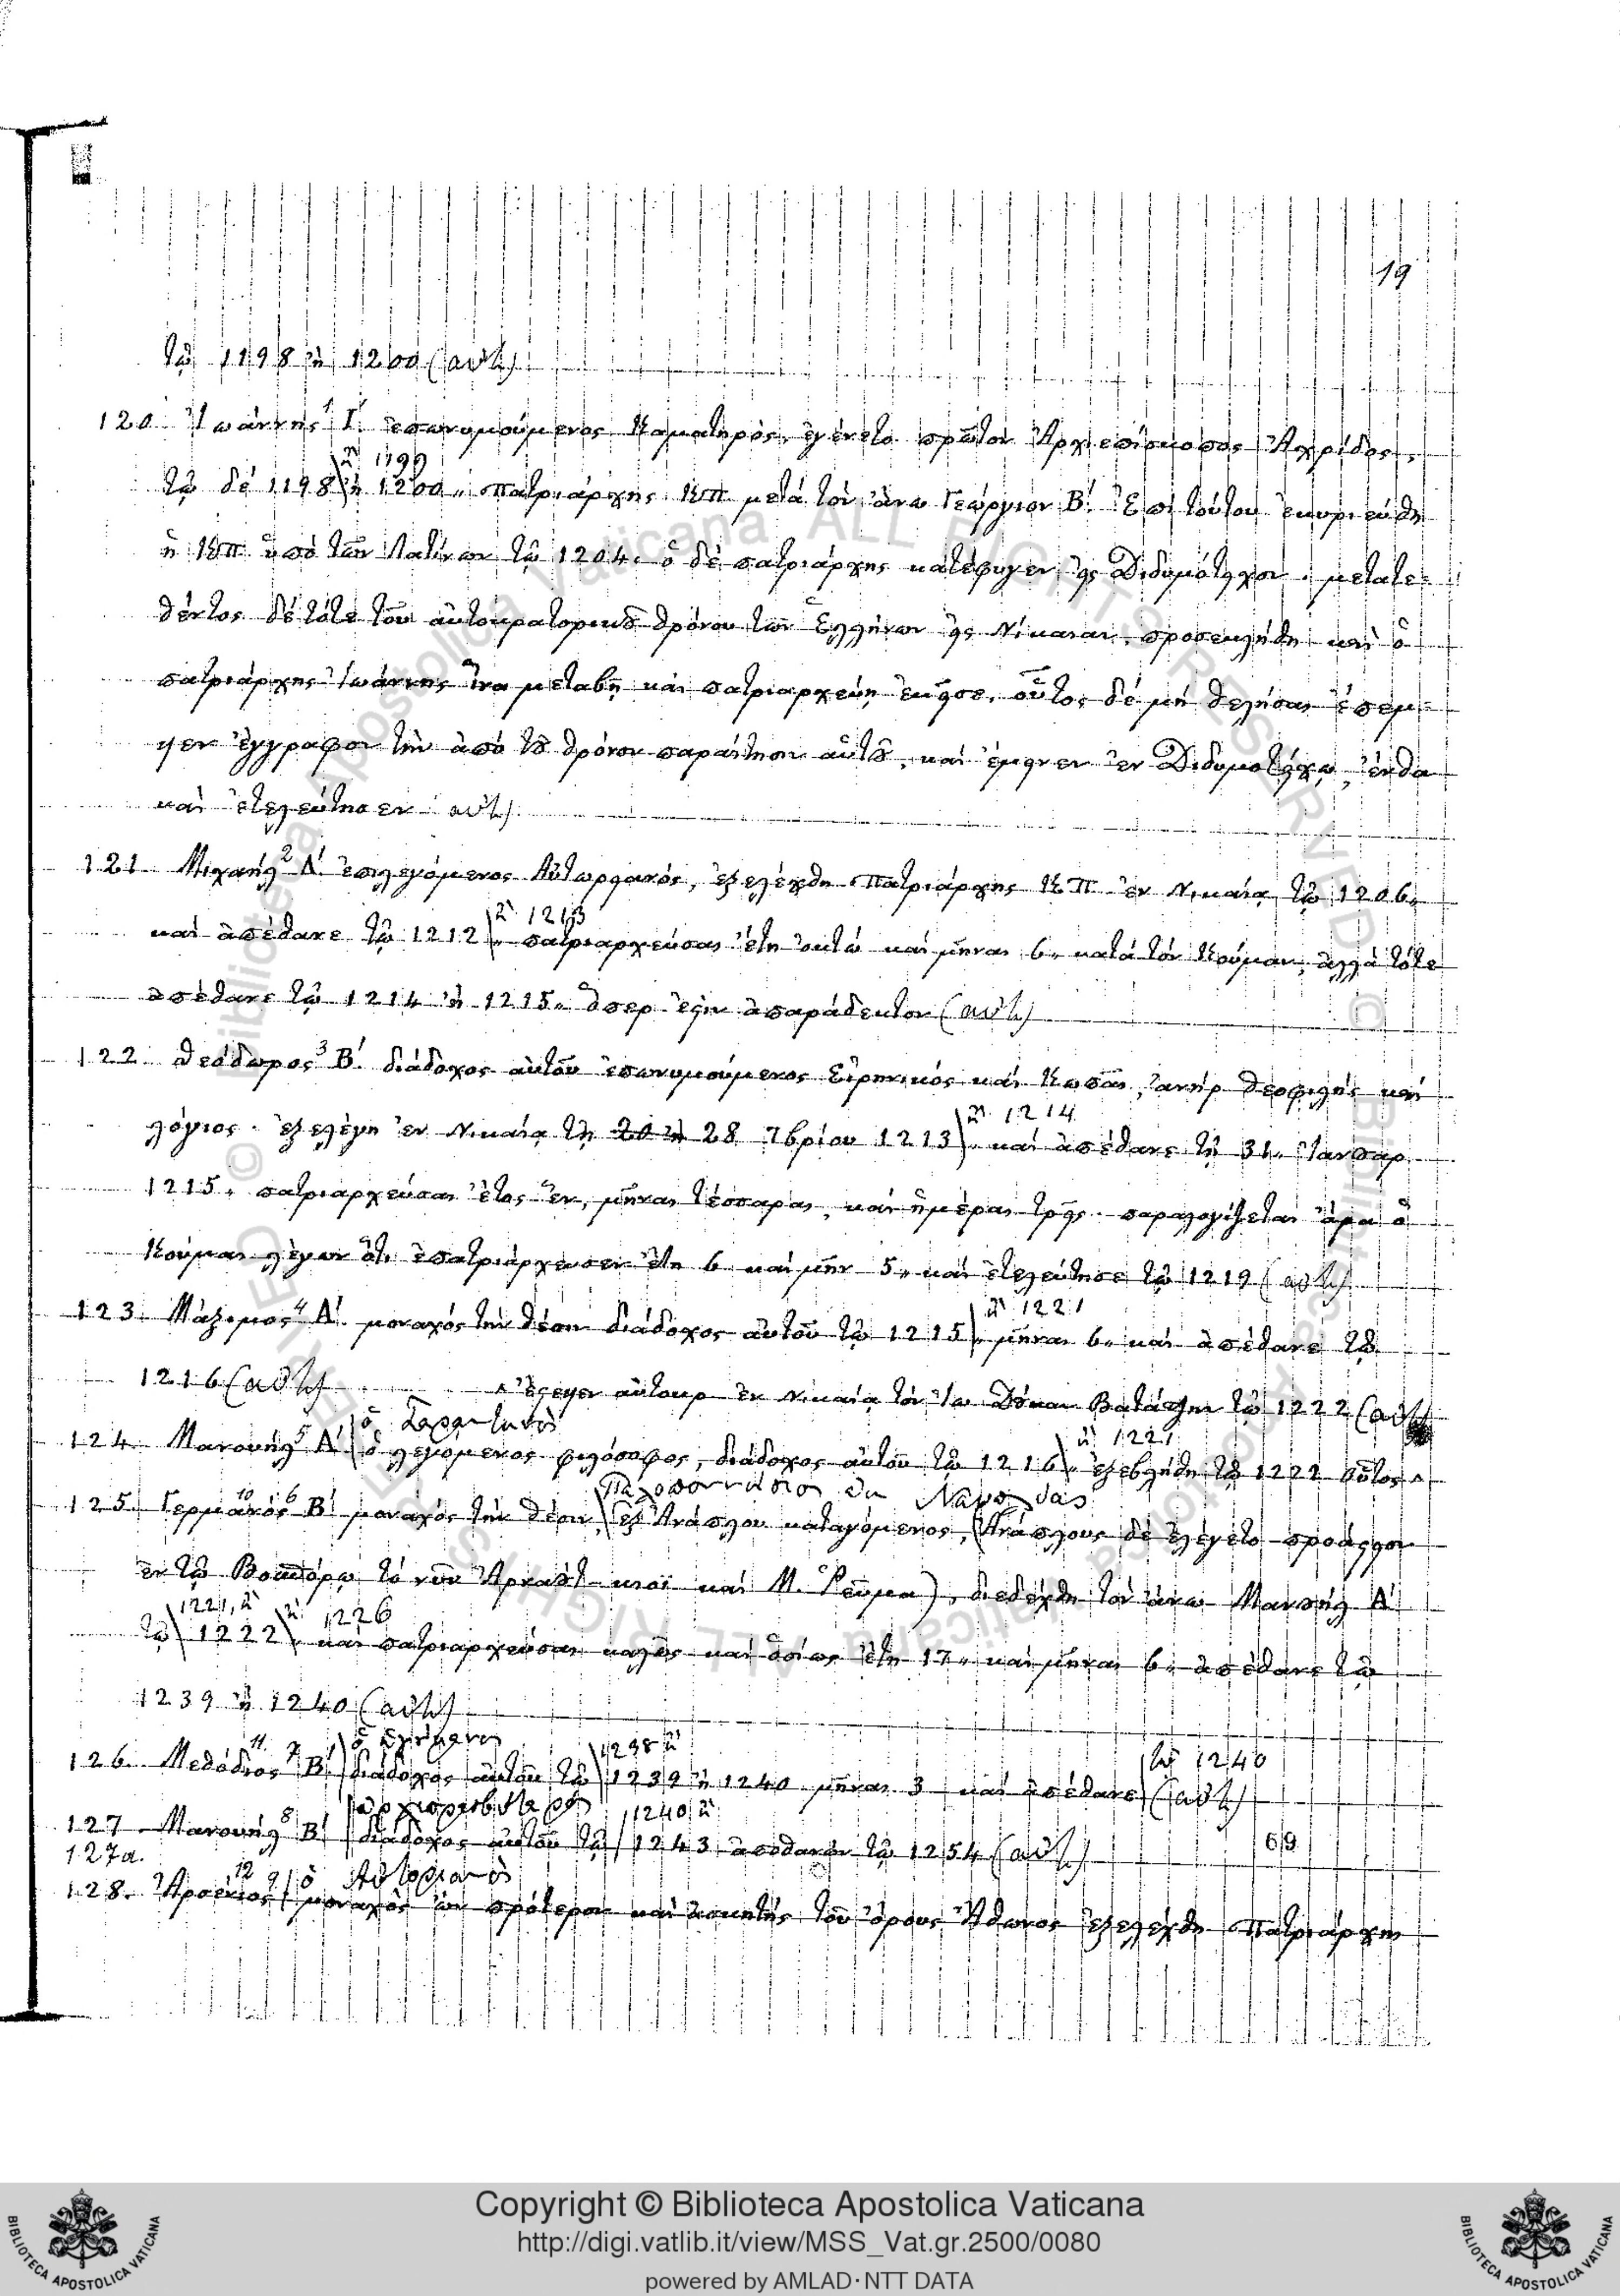 19
τῷ 1198 ἢ 1200 (αὐτ)
120. Ἰωάννης 1 Ι´ ἐπωνυμούμενος Καματηρός, ἐγένετο πρῶτον Ἀρχιεπίσκοπος Ἀχρίδος,
ἢ 1199
τῷ δέ 1198 ἢ 1200, Πατριάρχης ΚΠ μετά τόν ἄνω Γεώργιον Β´. Ἐπί τούτου ἐκυριεύθη
ἡ ΚΠ ὑπό τῶν Λατίνων τῷ 1204. ὁ δέ πατριάρχης κατέφυγεν εἰς Διδυμότειχον. μετατε-
θέντος δέ τότε τοῦ αὐτοκρατορικοῦ θρόνου τῶν Ἑλλήνων εἰς Νίκαιαν, προσεκλήθη καί ὁ
πατριάρχης Ἰωάννης ἵνα μεταβῇ καί πατριαρχεύῃ ἐκεῖσε. οὗτος δέ μή θελήσας ἔπεμ-
ψεν ἔγγραφον τήν ἀπό τοῦ θρόνου παραίτησιν αὐτοῦ, καί ἔμεινεν ἐν Διδυμοτείχῳ, ἔνθα
καί ἐτελεύτησεν (αὐτ)
121. Μιχαήλ 2 Δ´ ἐπιλεγόμενος Αὐτωρειανός, ἐξελέχθη Πατριάρχης ΚΠ ἐν Νικαίᾳ τῷ 1206.
ἢ 1213
καί ἀπέθανε τῷ 1212, πατριαρχεύσας ἔτη ὀκτώ καί μῆνας 6. κατά τόν Κούμαν, ἀλλά τότε
ἀπέθανε τῷ 1214 ἢ 1215. ὅπερ ἐστίν ἀπαράδεκτον (αὐτ)
122. Θεόδωρος 3 Β´. διάδοχος αὐτοῦ ἐπωνυμούμενος Εἰρηνικός καί Κωπᾶς, ἀνήρ θεοφιλής καί
ἢ 1214
λόγιος. ἐξελέγη ἐν Νικαίᾳ τῇ 20 ἢ 28 7βρίου 1213, καί ἀπέθανε τῇ 31. Ἰανουαρ
1215. πατριαρχεύσας ἔτος ἕν, μῆνας τέσσαρας, καί ἡμέρας τρεῖς. παραλογίζεται ἄρα ὁ
Κούμας λέγων ὅτι ἐπατριάρχευσεν ἔτη 6 καί μῆν 5, καί ἐτελεύτησε τῷ 1219 (αὐτ)
ἢ 1221
123. Μάξιμος 4 Α´. μοναχός τήν θέσιν διάδοχος αὐτοῦ τῷ 1215, μῆνας 6. καί ἀπέθανε τῷ
1216 (αὐτ) ^ ἔστεψεν αὐτοκρ ἐν Νικαίᾳ τόν Ἰω Δούκαν Βατάτζην τῷ 1222 (αὐτ)
ὁ Σαραντινὸς
ἢ 1221
124. Μανουήλ 5 Α´ ὁ λεγόμενος φιλόσοφος, διάδοχος αὐτοῦ τῷ 1216, ἐξεβλήθη τῷ 1222 οὗτος ^
125. Γερμανός 10 6 Β´ μοναχός τήν θέσιν, ἐξ Ἀνάπλου καταγόμενος, (Ἀνάπλους δέ ἐλέγετο προάστειον
ἐν τῷ Βοσπόρῳ τό νῦν Ἀρναούτ-κιοϊ καί Μ. Ῥεῦμα), διεδέχθη τόν ἄνω Μανουήλ Α´
1221, ἢ ἢ 1226
τῷ 1222, καί πατριαρχεύσας καλῶς καί ὁσίως ἔτη 17. καί μῆνας 6. ἀπέθανε τῷ
1239 ἢ 1240 (αὐτ)
1238 ἢ τῷ 1240
126. Μεθόδιος 11 7 Β´ διάδοχος αὐτοῦ τῷ 1239 ἢ 1240 μῆνας 3 καί ἀπέθανε (αὐτ)
1240 ἢ
127. Μανουήλ 8 Β´ διάδοχος αὐτοῦ τῷ 1243 ἀπέθανεν τῷ 1254 (αὐτ) 69
127α. ὁ Αὐτοριανὸς
128. Ἀρσένιος 12 9 μοναχός ὤν πρότερον καί ἀσκητής τοῦ ὄρους Ἄθωνος ἐξελέχθη Πατριάρχης
Copyright © Biblioteca Apostolica Vaticana
http://digi.vatlib.it/view/MSS_Vat.gr.2500/0080
powered by AMLAD·NTT DATA
BIBLIOTECA APOSTOLICA VATICANA
BIBLIOTECA APOSTOLICA VATICANA